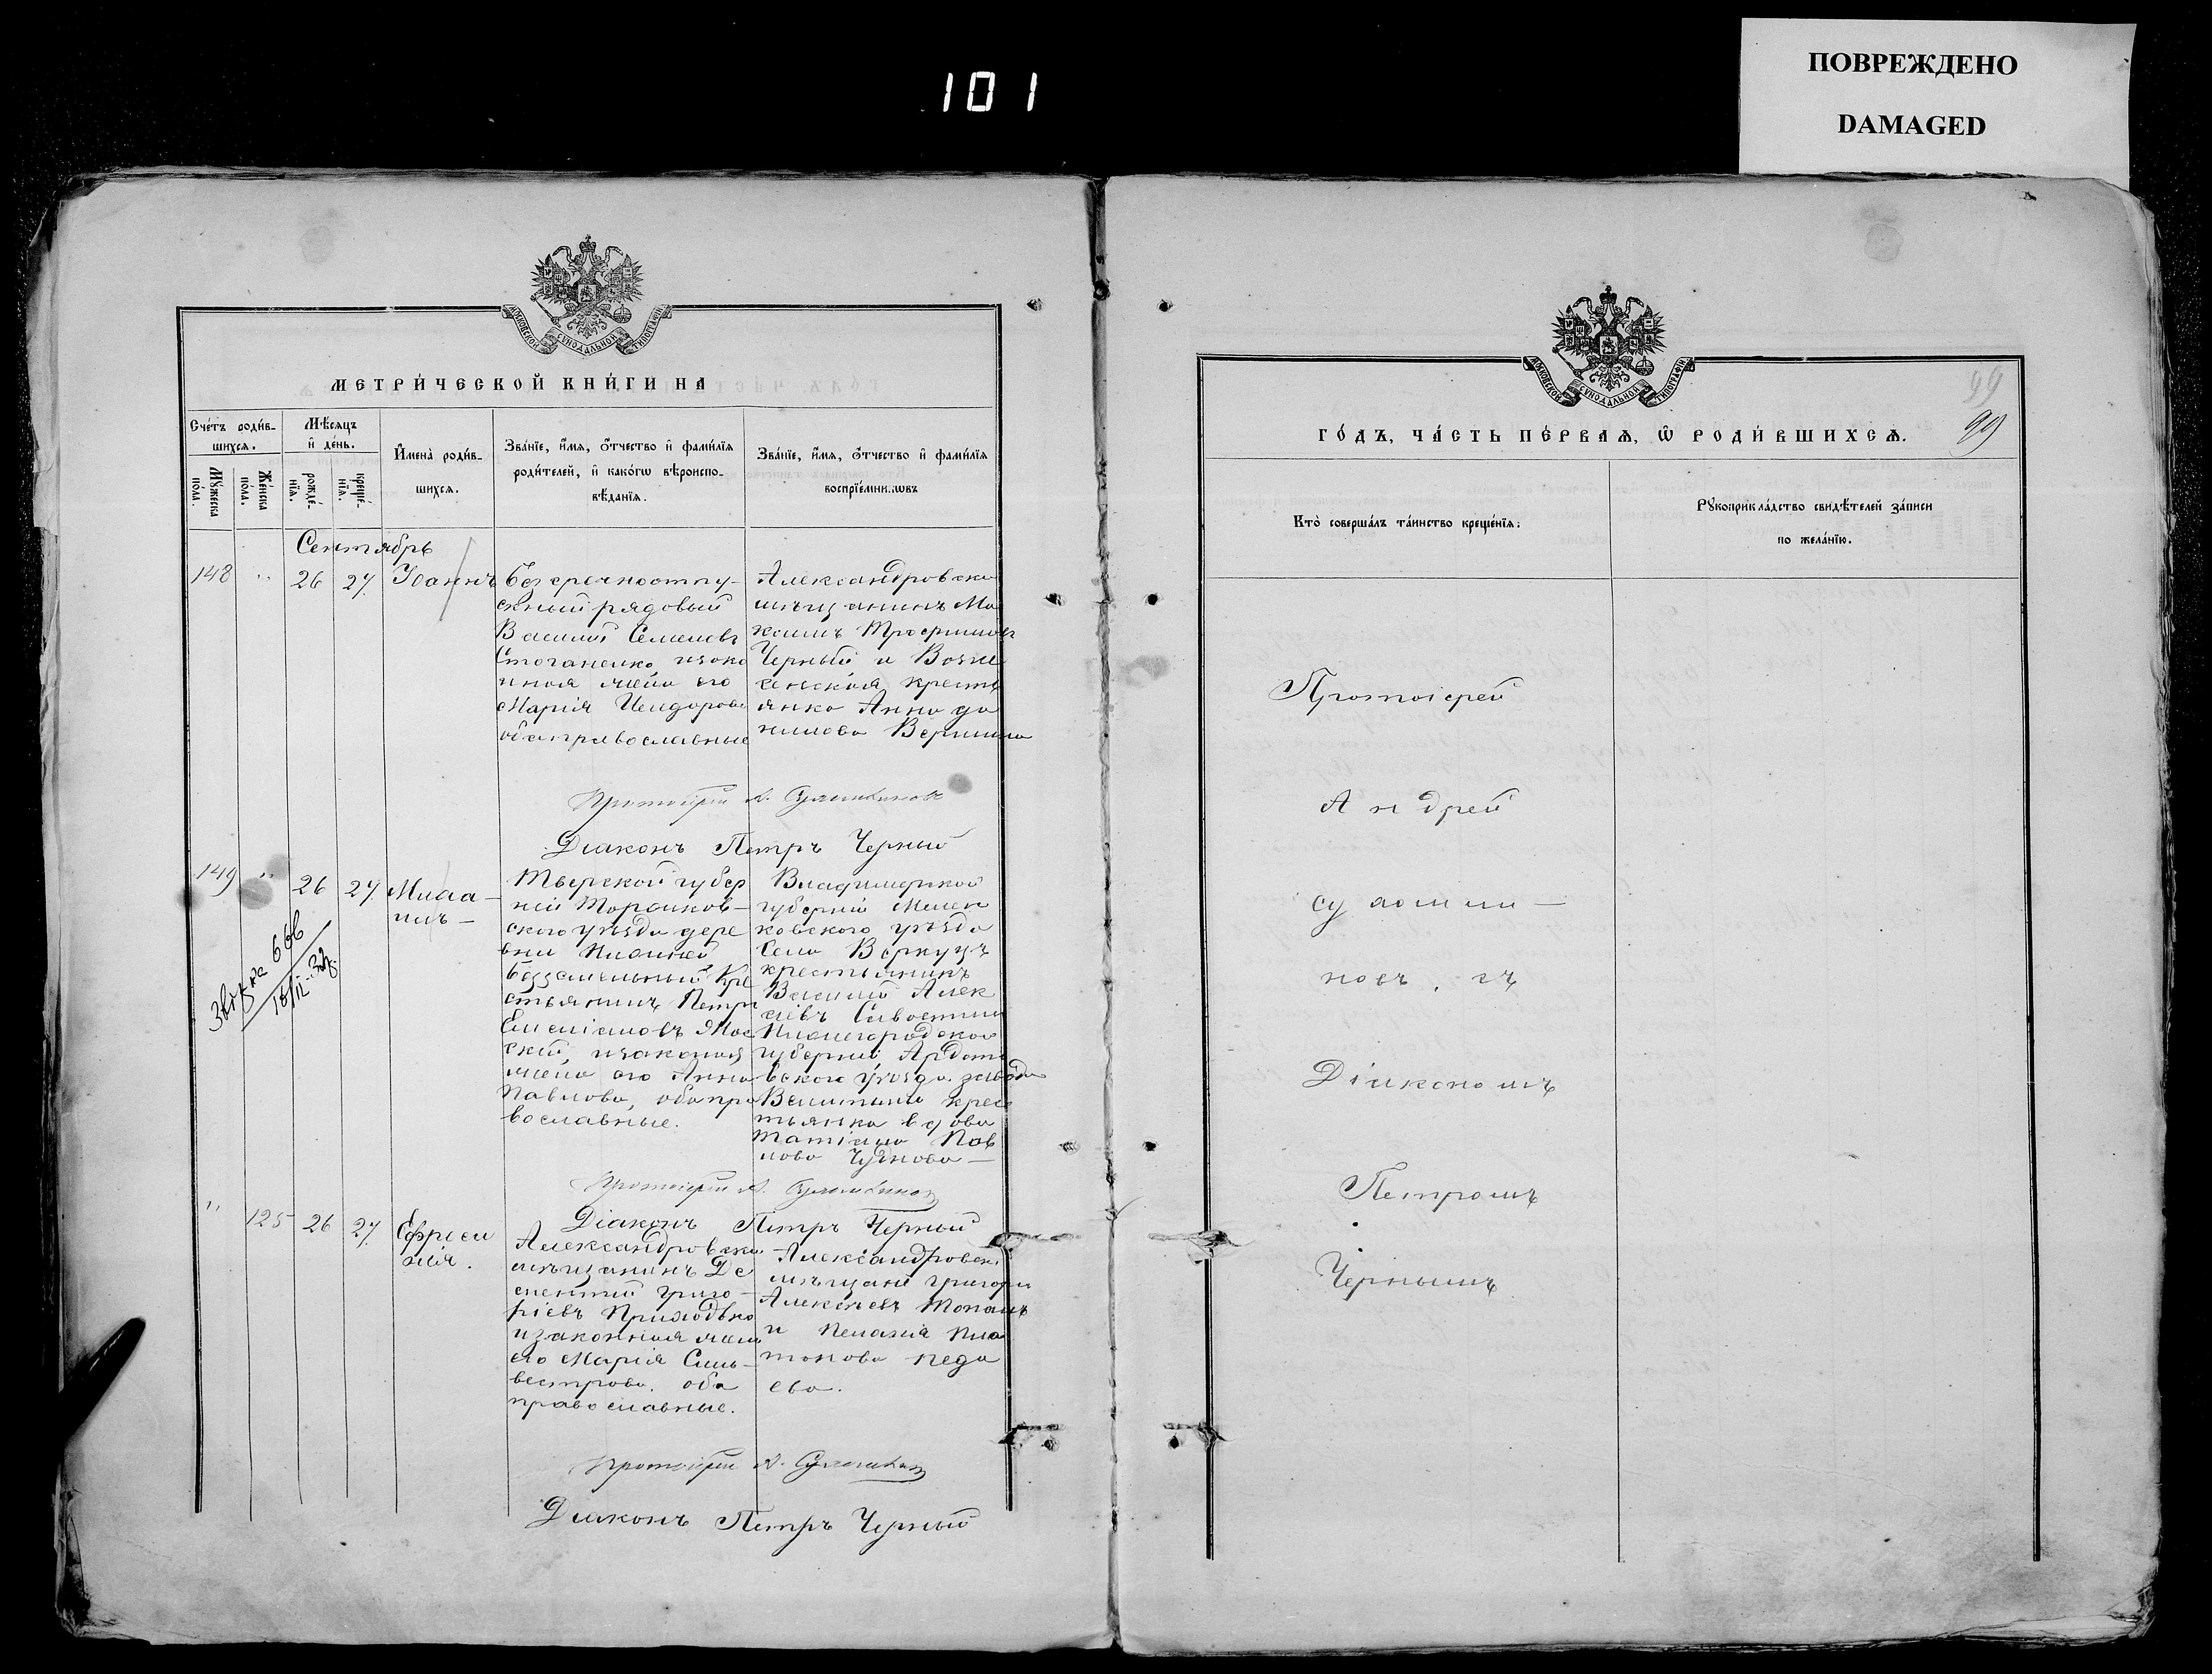 101
ПОВРЕЖДЕНО
DAMAGED
МОСКОВСКОЙ СѴНОДАЛЬНОЙ ТИПОГРАФІИ
МЕТРИ́ЧЕСКОЙ КНИ́ГИ НА
Сче́тъ роди́в-
шихся.
Мѣсяцъ
и҆ де́нь.
Мꙋжеска по́ла.
Же́нска по́ла.
рожде́-
нїя.
креще́-
нїя.
И҆мена̀ роди́в-
шихся.
Зва́нїе, и҆́мя, ѻ҆́тчество и҆ фами́лїя
роди́телей, и҆ како́гѡ вѣроиспо-
вѣ́данїя.
Зва́нїе, и҆́мя, ѻ҆́тчество и҆ фами́лїя
воспрїе́мниковъ
Сентябрь
148 " 26 27. Іоаннъ
безсрочноотпу-
скный рядовый
Василій Семеновъ
Стоганенко, изако
нная жена его
Марія Исидорова
оба православные
Александровски
мѣщанинъ Ма
ксимъ Трофимовъ
Черный и Возне
сенская кресть
янка Анна Да
нилова
Протоіерей А.
Діаконъ Петръ Черный
149 " 26 27. Миха-
илъ-
Тверской губер
ніи
ского уѣзда дере
вни
безземельный кре
стьянинъ Петръ
изаконная
жена его Анна
Павлова, оба пра
вославные.
Владимерской
губерніи Мелен
ковского уѣзда
Села
крестьянинъ
Василій Алек
сѣевъ
Нижегородской
губерніи Ардато
вского уѣзда завода
крес
тьянка вдова
Татіана Пав
лова Чуднова-
666
18/II-32
Протоіерей А.
Діаконъ Петръ Черный
" 125 26 27. Ефроси
нія.
Александровски
мѣщанинъ
Григо-
ріевъ Приходько
изаконная жена
его Марія Силь-
вестрова. оба
православные.
Александровскі
мѣщане Григорій
Алексѣевъ
и Пелагія Пла
тонова
ева.
Протоіерей А.
Діаконъ Петръ Черный
МОСКОВСКОЙ СѴНОДАЛЬНОЙ ТИПОГРАФІИ
99
99
ГО́ДЪ, ЧА́СТЬ ПЕ́РВАЯ, Ѡ҆ РОДИ́ВШИХСЯ.
Кто̀ соверша́лъ та́инство креще́нїя:
Рꙋкоприкла́дство свидѣ́телей за́писи
по жела́нїю.
Протоіерей
Андрей
съ
Діакономъ
Петромъ
Чернымъ